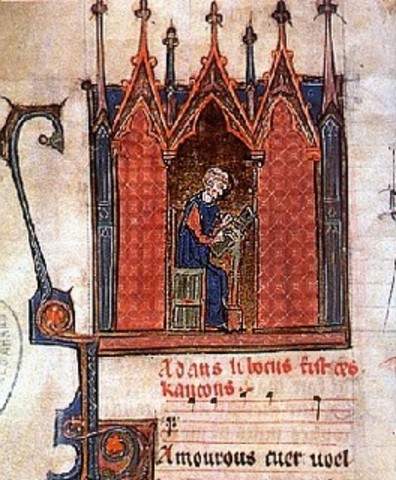 Adans li bocus fist ces
kancons
Amourous cuer voel